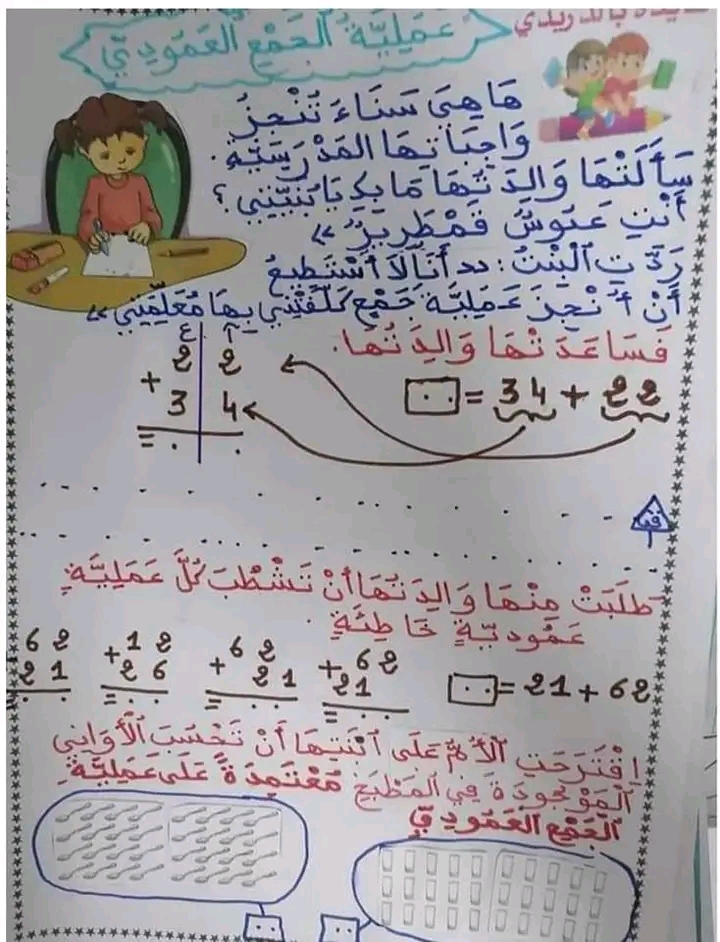 عَمَلِيَّةُ الْجَمْعِ الْعَمُودِيِّ
هَا هِيَ سَنَاءُ تُنْجِزُ
وَاجِبَاتِهَا الْمَدْرَسِيَّةِ.
سَأَلَتْهَا وَالِدَتُهَا مَا بِكِ يَا بُنَيَّتِي؟
أَنْتِ عَبُوسٌ قَمْطَرِيرٌ»
رَدَّتِ الْبِنْتُ: «أَنَا لَا أَسْتَطِيعُ
أَنْ أُنْجِزَ عَمَلِيَّةَ جَمْعٍ كَلَّفَتْنِي بِهَا مُعَلِّمَتِي»
فَسَاعَدَتْهَا وَالِدَتُهَا.
22 + 34 = ..
ع آ
2 2
+
3 4
= . .
طَلَبَتْ مِنْهَا وَالِدَتُهَا أَنْ تَشْطُبَ كُلَّ عَمَلِيَّةٍ
عَمُودِيَّةٍ خَاطِئَةٍ.
62 + 21 = ..
+ 62
21
= . .
+ 62
21
= . .
+ 12
26
= . .
62
21
. .
اِقْتَرَحَتِ الْأُمُّ عَلَى ابْنَتِهَا أَنْ تَحْسُبَ الْأَوَانِي
الْمَوْجُودَةَ فِي الْمَطْبَخِ مُعْتَمِدَةً عَلَى عَمَلِيَّةِ
الْجَمْعِ الْعَمُودِيِّ